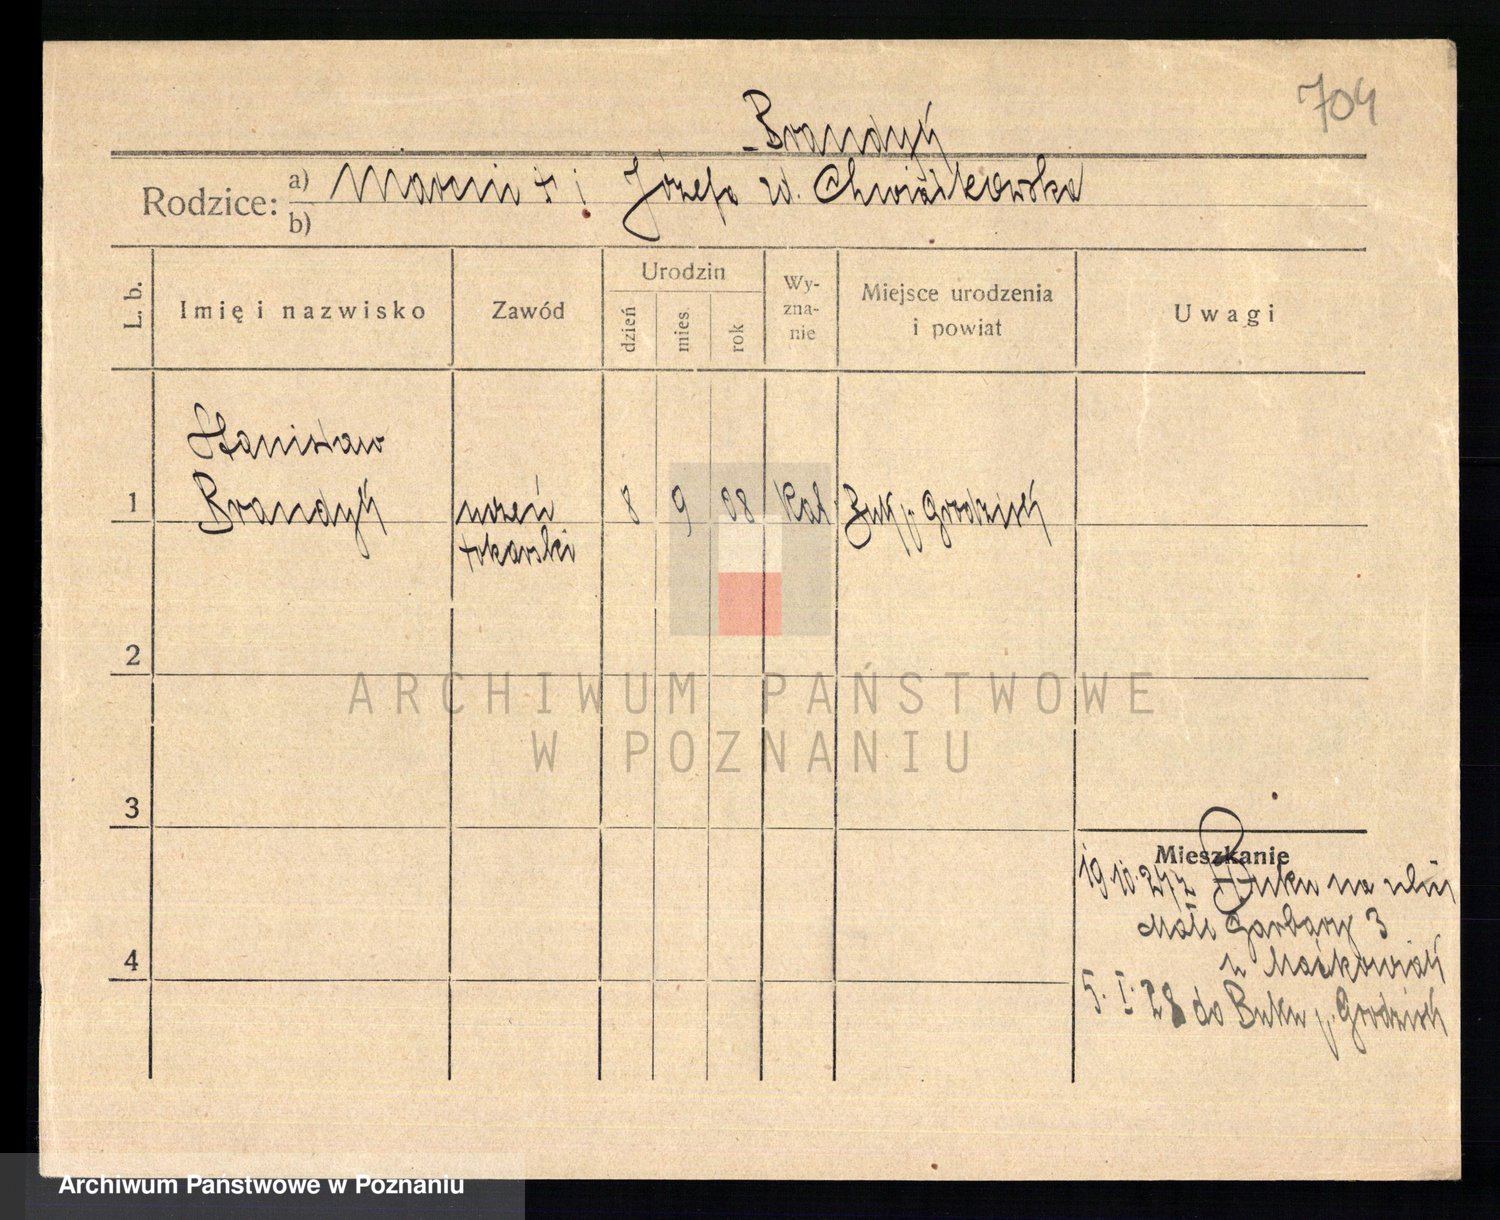 704
Brandyś
Rodzice: a) Marcin + i Józefa ur. Chwiałkowska
b)
L. b.
Imię i nazwisko
Zawód
Urodzin
dzień
mies.
rok
Wy-
zna-
nie
Miejsce urodzenia
i powiat
Uwagi
Stanisław
1 Brandyś uczeń 8 9 08 kat Buk p. Grodzisk
tokarski
2
3
4
Mieszkanie
19.10.27 z Buku na ulicę
Małe Garbary 3
u
5. I. 28 do Buku p. Grodzisk
ARCHIWUM PAŃSTWOWE
W POZNANIU
Archiwum Państwowe w Poznaniu